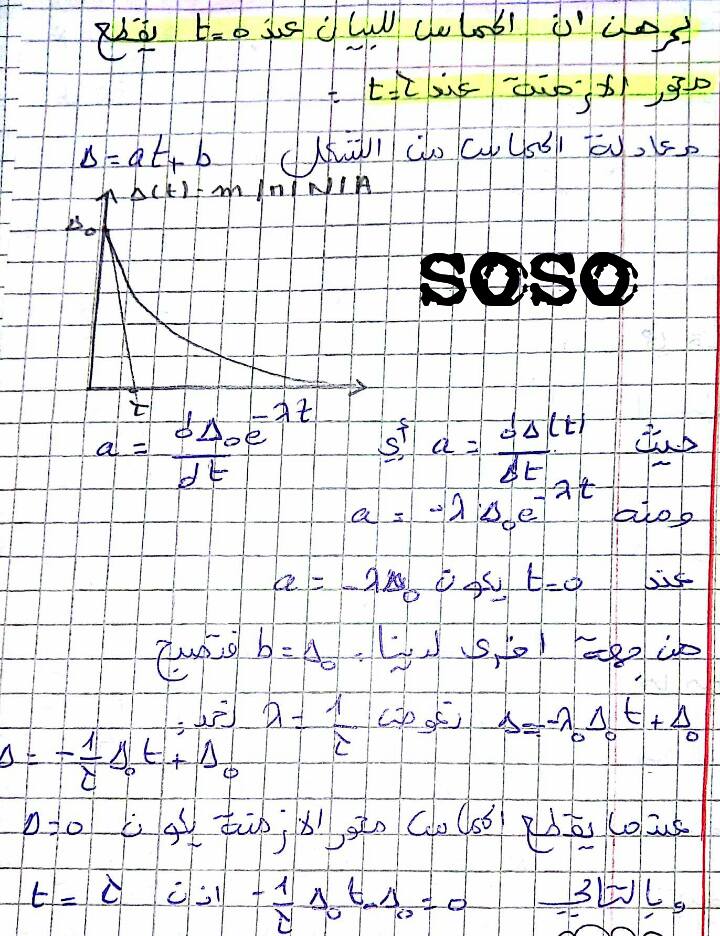 يبرهن ان المماس للبيان عند t=0 يقطع
محور الازمنة عند t=τ :
معادلة المماس من الشكل Δ=at+b
Δ(t)-m/n/N/A
Δ₀
SOSO
τ
حيث a = dΔ(t)/Δt أي a = dΔ₀e^-λt/dt
ومنه a = -λΔ₀e^-λt
عند t=0 يكون a = -λΔ₀
من جهة اخرى لدينا: b=Δ₀ فتصبح
Δ=-λ₀Δ₀t+Δ₀ نعوض λ=1/τ نجد:
Δ = -1/τ Δ₀t+Δ₀
عندما يقطع المماس محور الازمنة يكون Δ=0
وبالتالي -1/τ Δ₀t-Δ₀=0 اذن t = τ